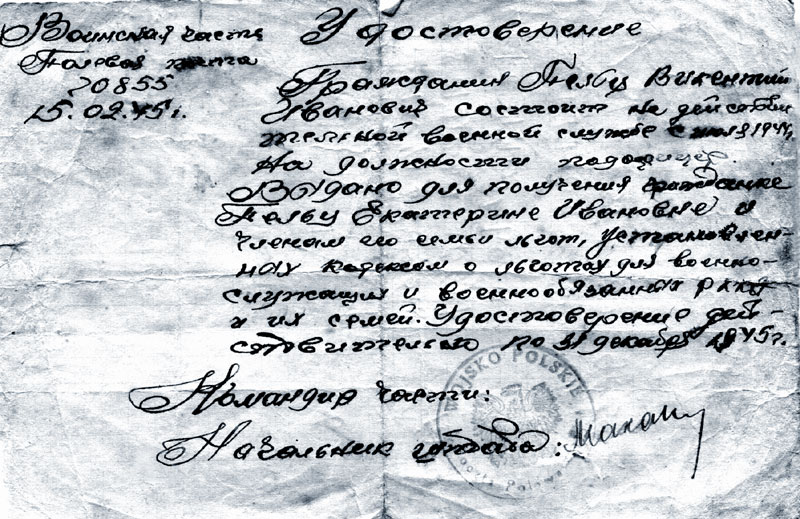 Воинская часть
Полевая почта
70855
15.02.45 г.
Удостоверение
Гражданин Пельц Викентий
Иванович состоит на действи
тельной военной службе с июля 1944
на должности подофицер.
Выдано для получения гражданке
Пельц Екатерине Ивановне и
членам его семьи льгот, установлен-
ных кодексом о льготах для военно-
служащих и военнообязанных РККА
и их семей. Удостоверение дей-
ствительно по 31 декабря 1945 г.
Командир части:
Начальник штаба:
WOJSKO POLSKIE
Poczta Polowa